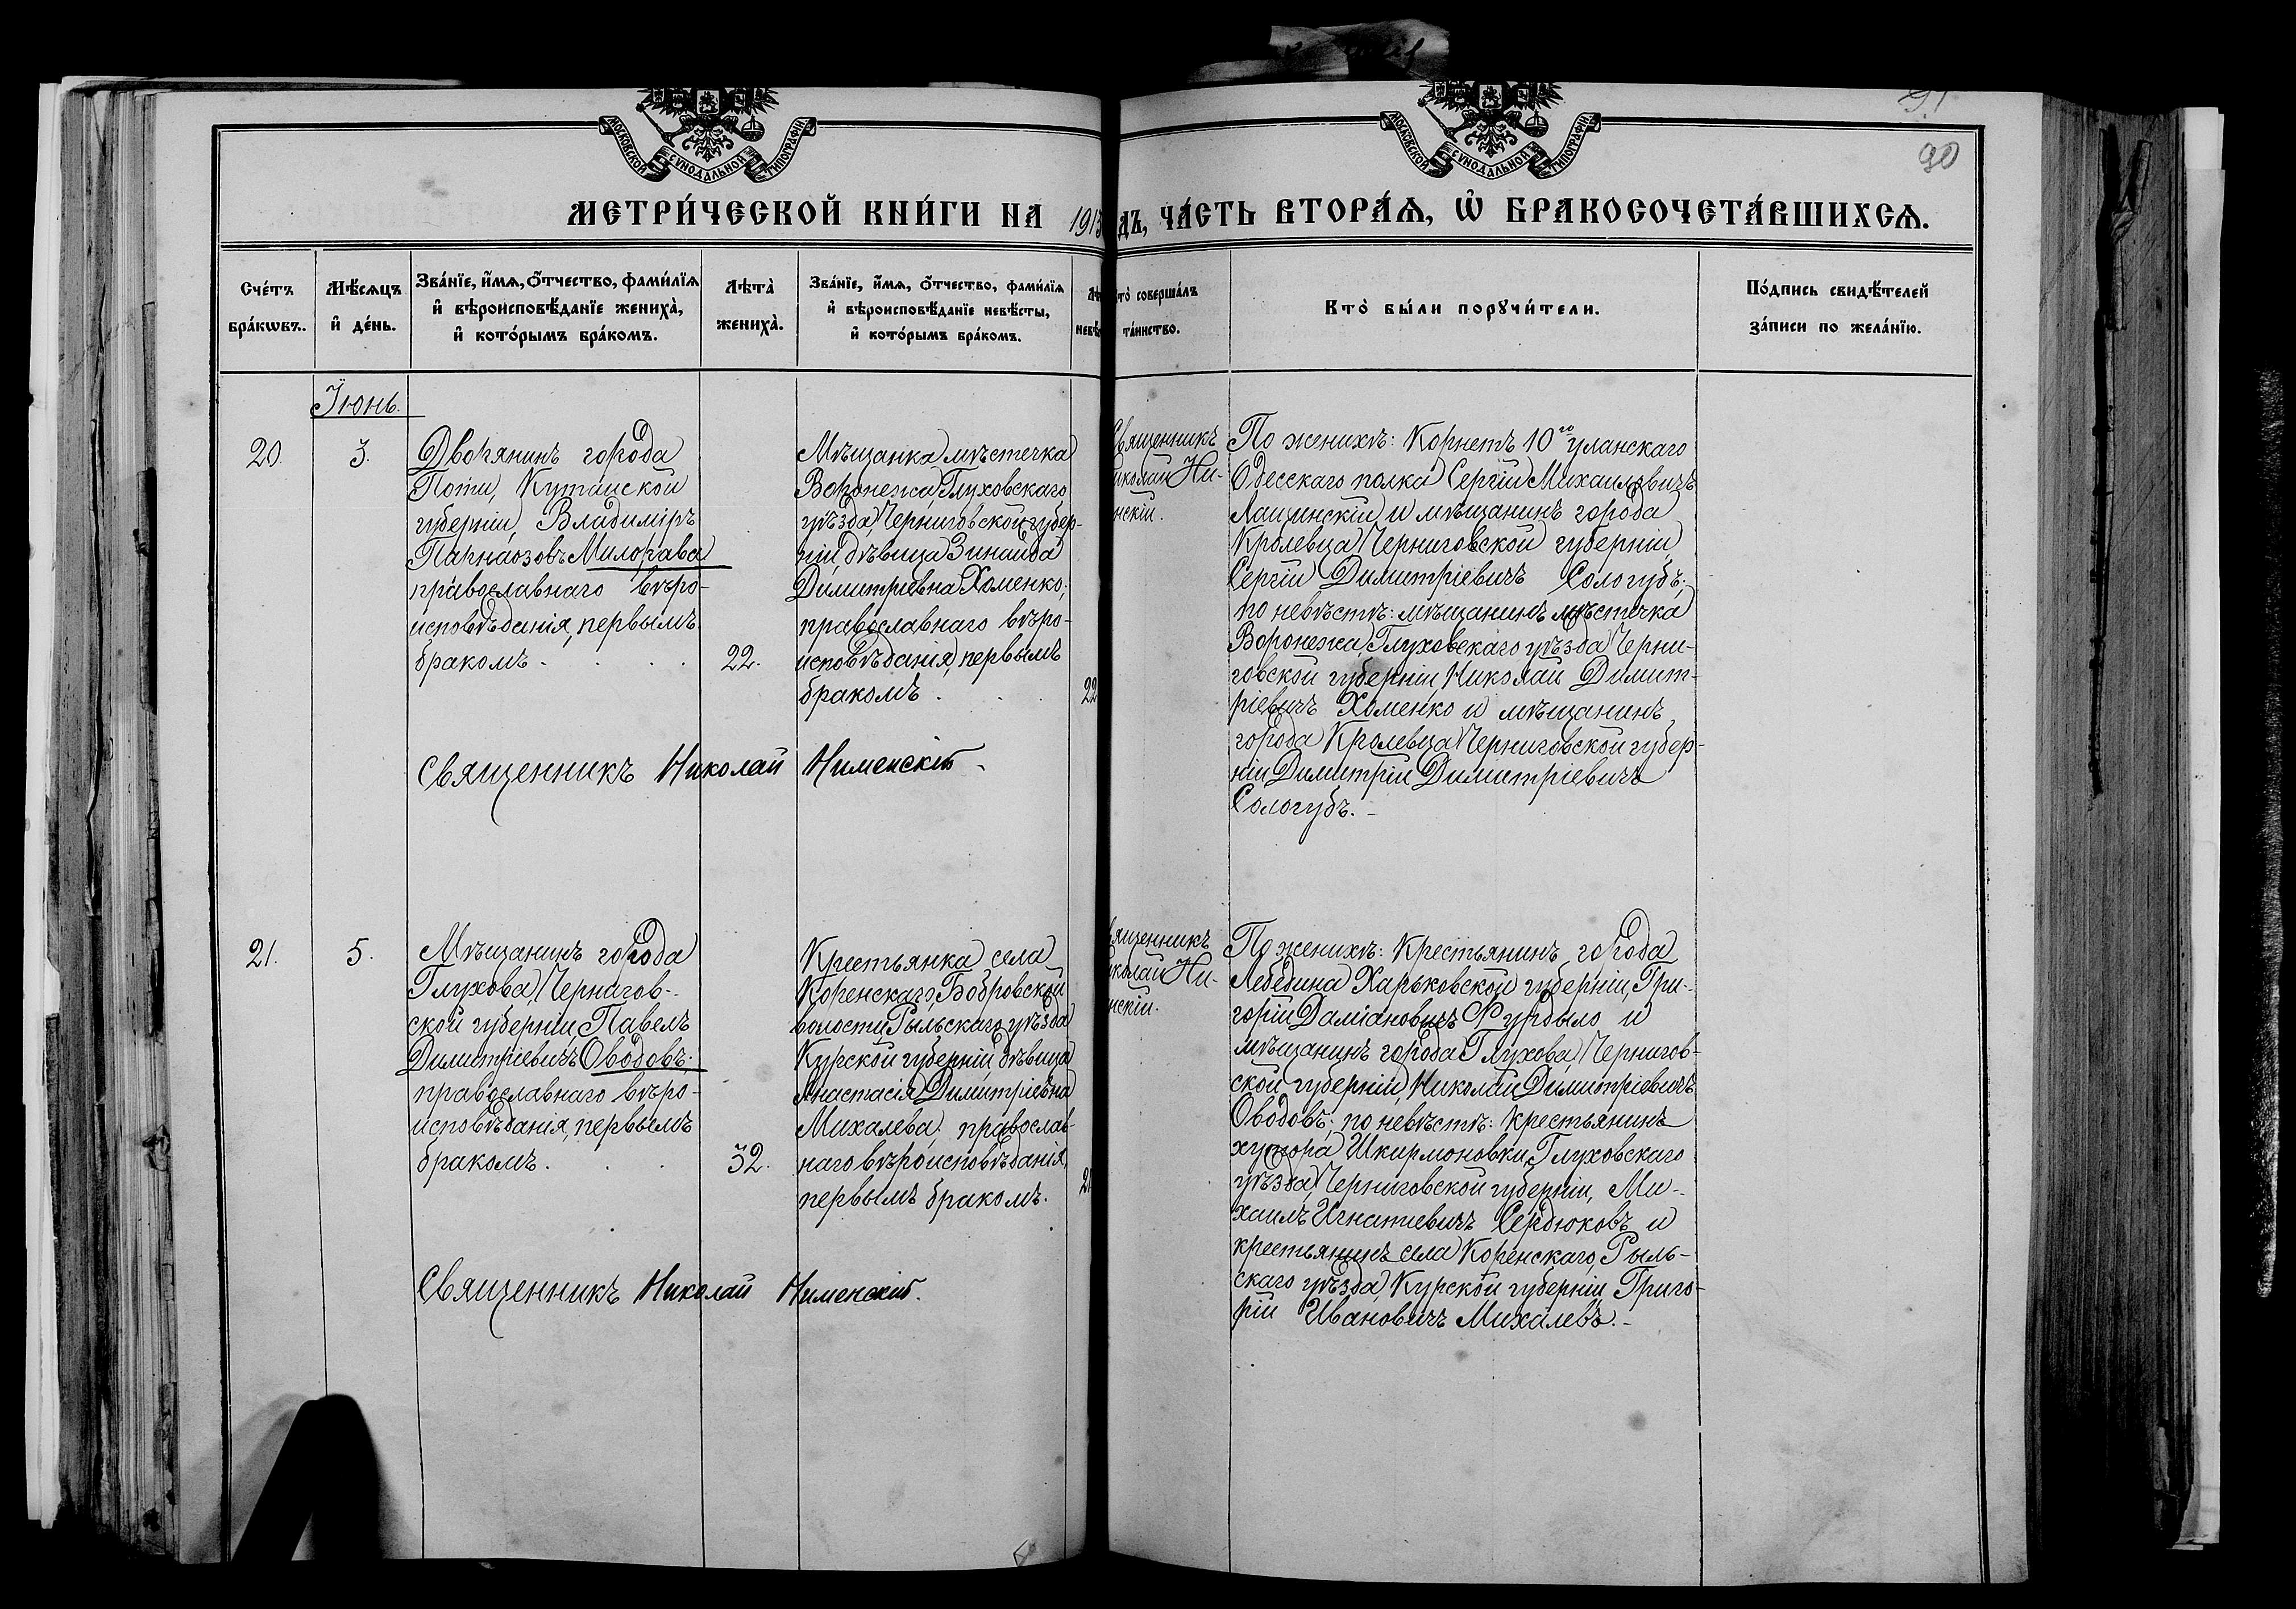 91
90
МОСКОВСКОЙ СѴНОДАЛЬНОЙ ТИПОГРАФІИ
МОСКОВСКОЙ СѴНОДАЛЬНОЙ ТИПОГРАФІИ
МЕТРИ́ЧЕСКОЙ КНИ́ГИ НА 1913
ДЪ, ЧА́СТЬ ВТОРА́Ѧ, Ѽ БРАКОСОЧЕТА́ВШИХСѦ.
Сче́тъ
бра́кѡвъ.
Мѣ́сѧцъ
и҆ де́нь.
Зва́нїе, и҆́мѧ, ѻ҆́тчество, фами́лїѧ
и҆ вѣроисповѣ́данїе жениха̀,
и҆ кото́рымъ бра́комъ.
Лѣта̀
жениха̀.
Зва́нїе, и҆́мѧ, ѻ҆́тчество, фами́лїѧ
и҆ вѣроисповѣ́данїе невѣ́сты,
и҆ кото́рымъ бра́комъ.
Лѣ
невѣ
то̀ соверша́лъ
та́инство.
Кто̀ бы́ли порꙋчи́тели.
По́дпись свидѣ́телей
за́писи по жела́нїю.
Іюнь.
20.
3.
Дворянинъ города
Поти, Кутаиской
губерніи, Владиміръ
Парнаозовъ Милорава
православнаго вѣро-
исповѣданія, первымъ
бракомъ.
22.
Мѣщанка мѣстечка
Воронежа, Глуховскаго
уѣзда, Черниговской губер-
ніи, дѣвица Зинаида
Димитріевна Хоменко,
православнаго вѣро-
исповѣданія, первымъ
бракомъ.
22
Священникъ
иколай Ни-
нскій.
По женихѣ: Корнетъ 10го уланскаго
Одесскаго полка Сергій Михаиловичъ
Лащинскій и мѣщанинъ города
Кролевца, Черниговской губерніи
Сергій Димитріевичъ Сологубъ;
по невѣстѣ: мѣщанинъ мѣстечка
Воронежа, Глуховскаго уѣзда, Черни-
говской губерніи, Николай Димит-
ріевичъ Хоменко и мѣщанинъ
города Кролевца Черниговской губер-
ніи Димитрій Димитріевичъ
Сологубъ.-
Священникъ Николай Нименскій
21.
5.
Мѣщанинъ города
Глухова, Чернигов-
ской губерніи, Павелъ
Димитріевичъ Оводовъ,
православнаго вѣро-
исповѣданія, первымъ
бракомъ.
32.
Крестьянка села
Коренскаго, Бобровской
волости, Рыльскаго уѣзда
Курской губерніи, дѣвица
Анастасія Димитріевна
Михалева, православ-
наго вѣроисповѣданія,
первымъ бракомъ.
2
вященникъ
иколай Ни-
нскій.
По женихѣ: Крестьянинъ города
Лебедина Харьковской губерніи, Гри-
горій Даміановичъ Фурдыло и
мѣщанинъ города Глухова, Чернигов-
ской губерніи, Николай Димитріевичъ
Оводовъ; по невѣстѣ: крестьянинъ
хутора Шкирмоновки, Глуховскаго
уѣзда, Черниговской губерніи, Ми-
хаилъ Игнатіевичъ Сердюковъ и
крестьянинъ села Коренскаго, Рыль-
скаго уѣзда, Курской губерніи, Григо-
рій Ивановичъ Михалевъ.-
Священникъ Николай Нименскій.